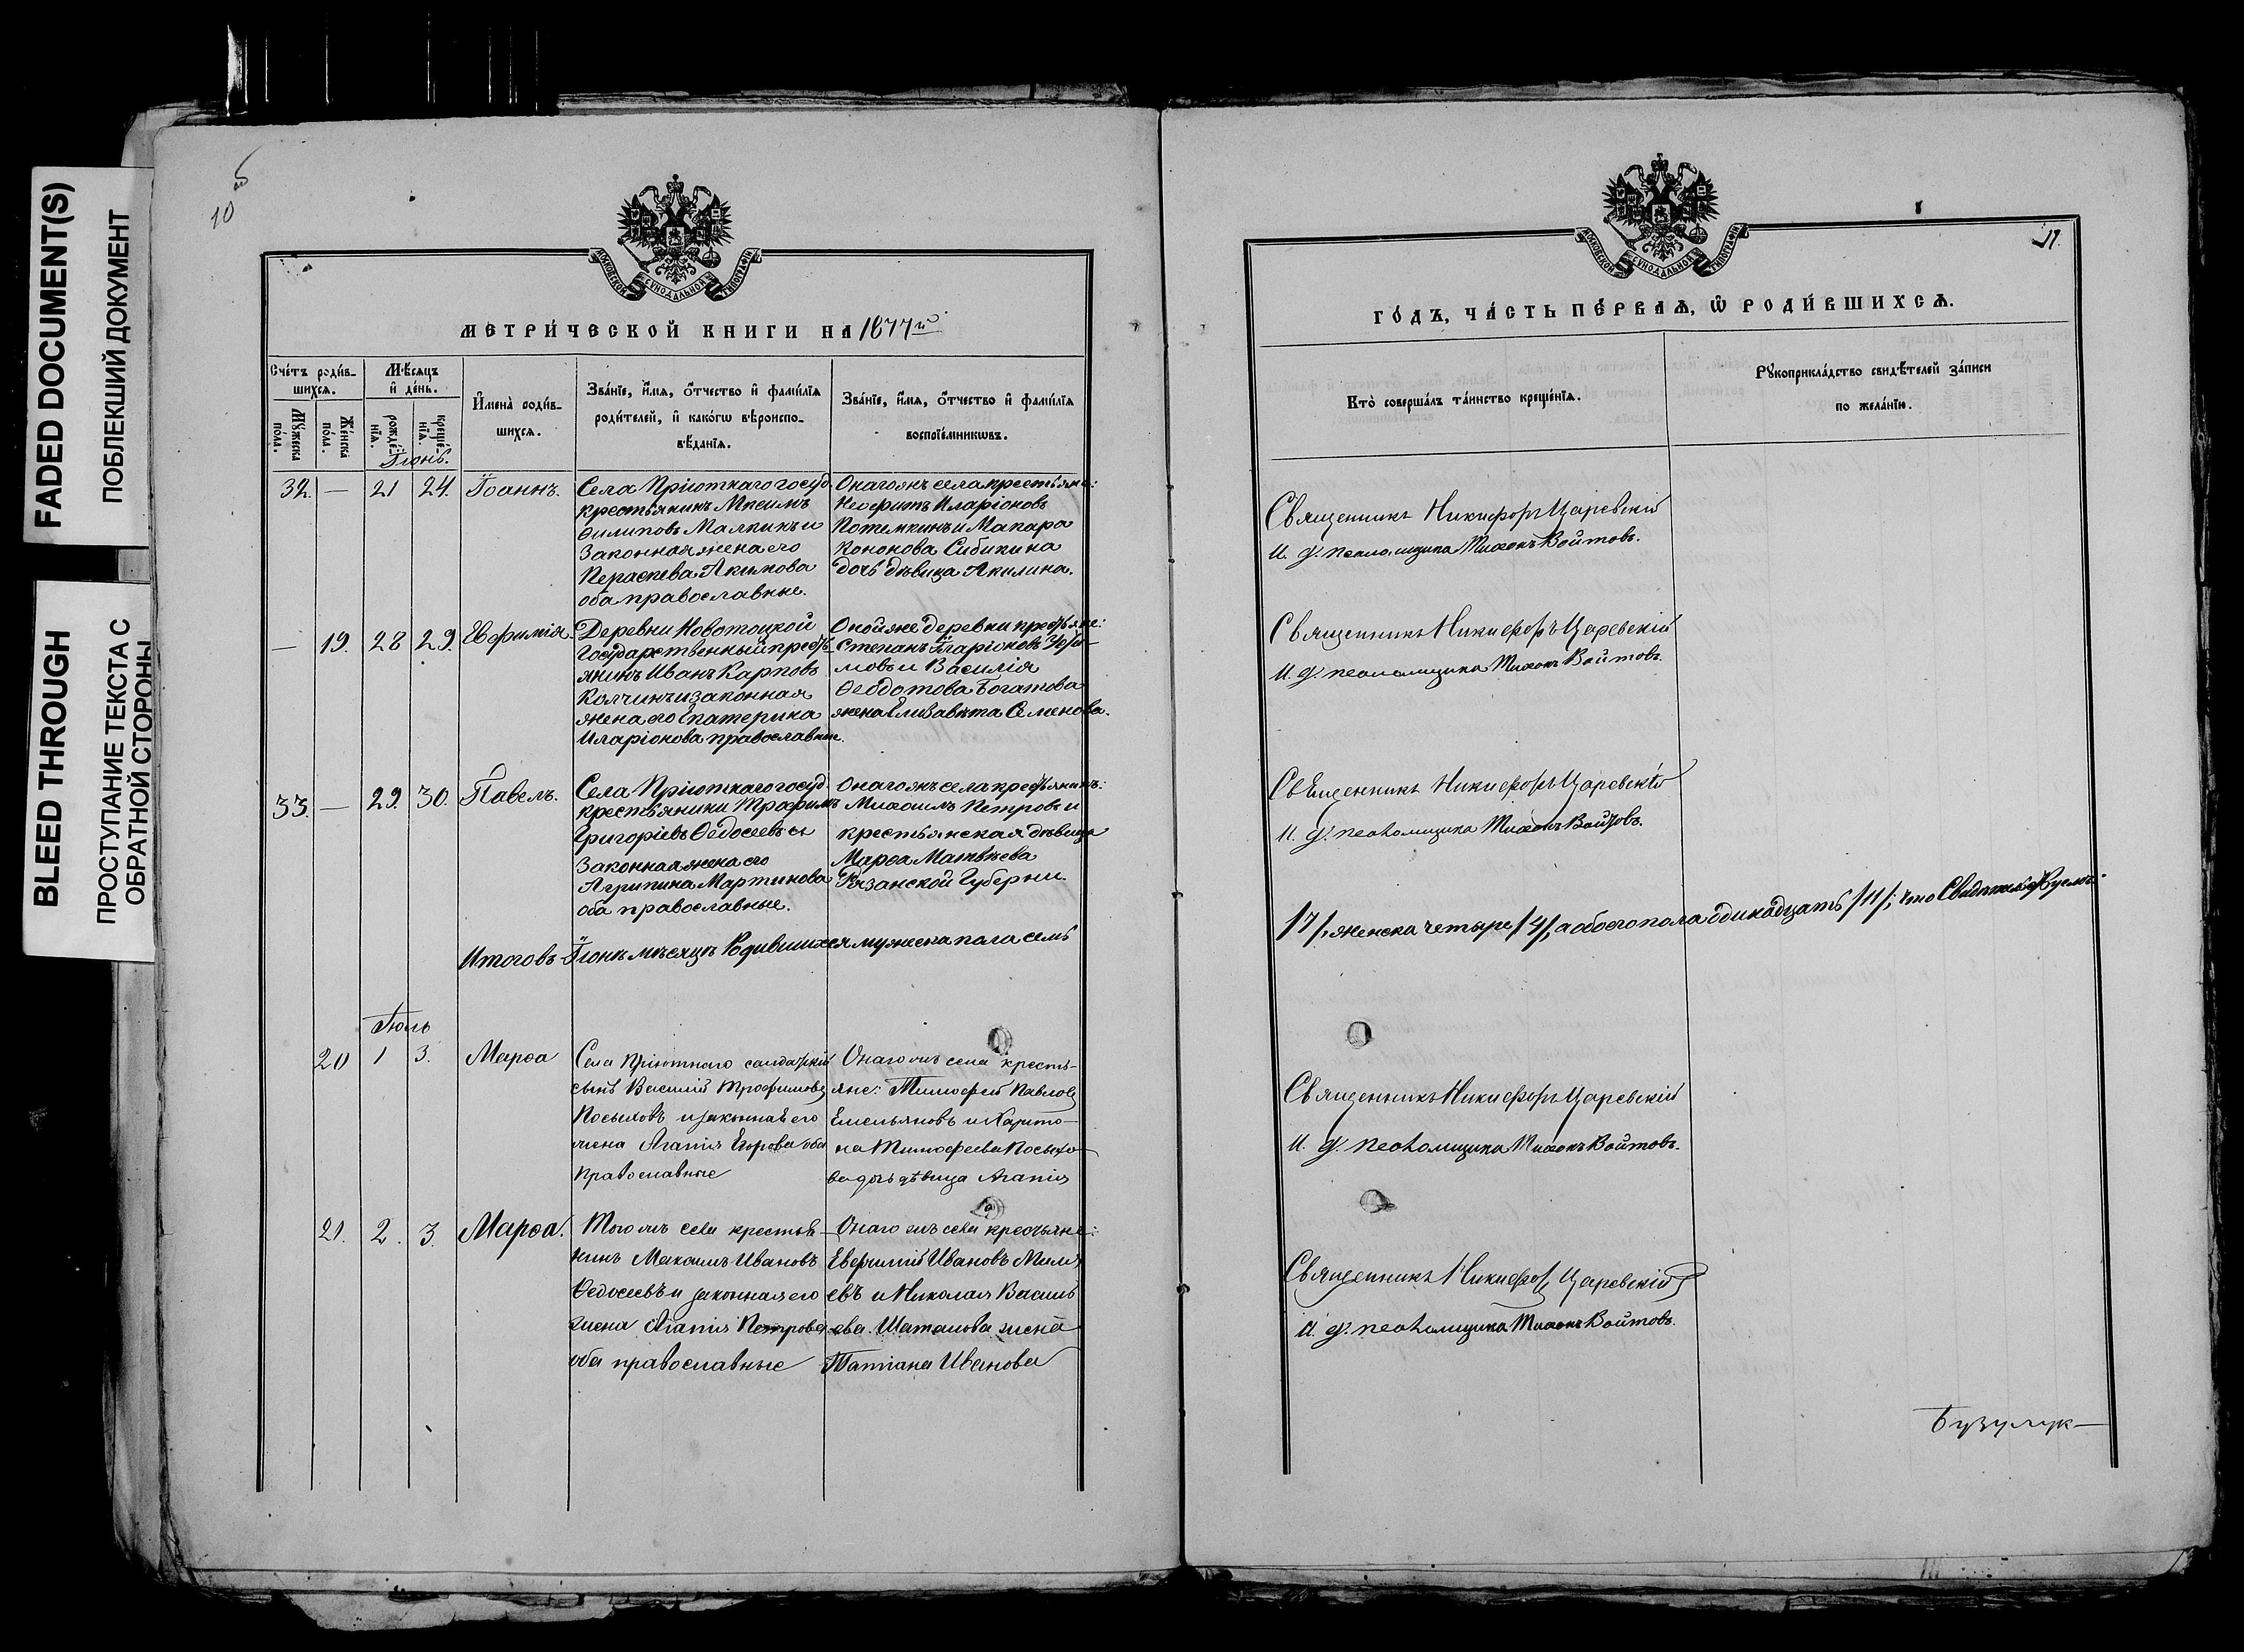 FADED DOCUMENT(S)
ПОБЛЕКШИЙ ДОКУМЕНТ
BLEED THROUGH
ПРОСТУПАНИЕ ТЕКСТА С
ОБРАТНОЙ СТОРОНЫ
10
МОСКОВСКОЙ СѴНОДАЛЬНОЙ ТИПОГРАФІИ
МЕТРИ́ЧЕСКОЙ КНИГИ НА 1877й
Сче́тъ роди́в-
шихся.
Мѹ́жеска
по́ла.
Же́нска
по́ла.
М҃ѣсяцъ
и҆ де́нь.
рожде́-
нїя.
креще́-
нїя.
И҆мена̀ роди́в-
шихся.
Зва́нїе, и҆́мя, ѻ҆́тчество и҆ фами́лїя
роди́телей, и҆ како́гѡ вѣроиспо-
вѣ́данїя.
Зва́нїе, и҆́мя, ѻ҆́тчество и҆ фами́лїя
воспрїе́мникѡвъ.
Іюнь.
32. — 21 24. Іоаннъ.
Села Пріютнаго госуд.
крестьянинъ
Ѳилиповъ Малкинъ и
Законная жена его
Параскева Акимова
оба православные.
Онагожъ села крестьяне:
Неофитъ Иларіоновъ
Потемкинъ и Макара
Кононова Сибикина
дочь дѣвица Акилина.
— 19. 28 29. Евфимія.
Деревни Новотоцкой
Государственный кресть-
янинъ Иванъ Карповъ
Колчинъ и законная
жена его Екатерина
Иларіонова православные.
Онойже деревни крестьяне:
Степанъ Иларіоновъ
мовъ и Василія
Ѳеодотова Богатова
жена Елизавета Семенова.
33. — 29. 30. Павелъ.
Села Пріютнаго госуд.
крестьянинъ Трофимъ
Григоріевъ Ѳедосеевъ и
Законная жена его
Агрипина Мартинова
оба православные.
Онагожъ села крестьянинъ:
Михаилъ Петровъ и
крестьянская дѣвица
Марѳа Матвѣева
Рязанской Губерни.
Итого въ Іюнѣ мѣсяцѣ Родившихся мужеска пола семь
Іюль
20 1 3. Марѳа
Села Пріютнаго солдатскій
сынъ Василій Трофимовъ
Посыховъ и законная его
жена Агапія Егорова оба
Православные
Онаго жъ села кресть-
яне: Тимофей Павловъ
Емельяновъ и Харито-
на Тимофеева Посыхо-
ва дочь дѣвица Агапія
21. 2. 3. Марѳа.
Того жъ села крестья-
нинъ Максимъ Ивановъ
Ѳедосеевъ и законная его
жена Агапія Петрова
оба православные
Онаго жъ села крестьяне:
Евфимій Ивановъ Миля
евъ и Николая Василь
ева Шаталова жена
Татіана Иванова
11.
МОСКОВСКОЙ СѴНОДАЛЬНОЙ ТИПОГРАФІИ
ГО́ДЪ, ЧА́СТЬ ПЕ́РВАЯ, Ѡ҆ РОДИ́ВШИХСЯ.
Кто̀ соверша́лъ та́инство креще́нїя.
Рѹкоприкла́дство свидѣ́телей за́писи
по жела́нїю.
Священникъ Никифоръ Царевскій
И. д. псаломщика Тихонъ Войтовъ.
Священникъ Никифоръ Царевскій
И. д. псаломщика Тихонъ Войтовъ.
Священникъ Никифоръ Царевскій
И. д. псаломщика Тихонъ Войтовъ.
/7/, женска четыре /4/, а обоего пола одинадцать /11/; что
Священникъ Никифоръ Царевскій
И. д. псаломщика Тихонъ Войтовъ.
Священникъ Никифоръ Царевскій
И. д. псаломщика Тихонъ Войтовъ.
Бузулук